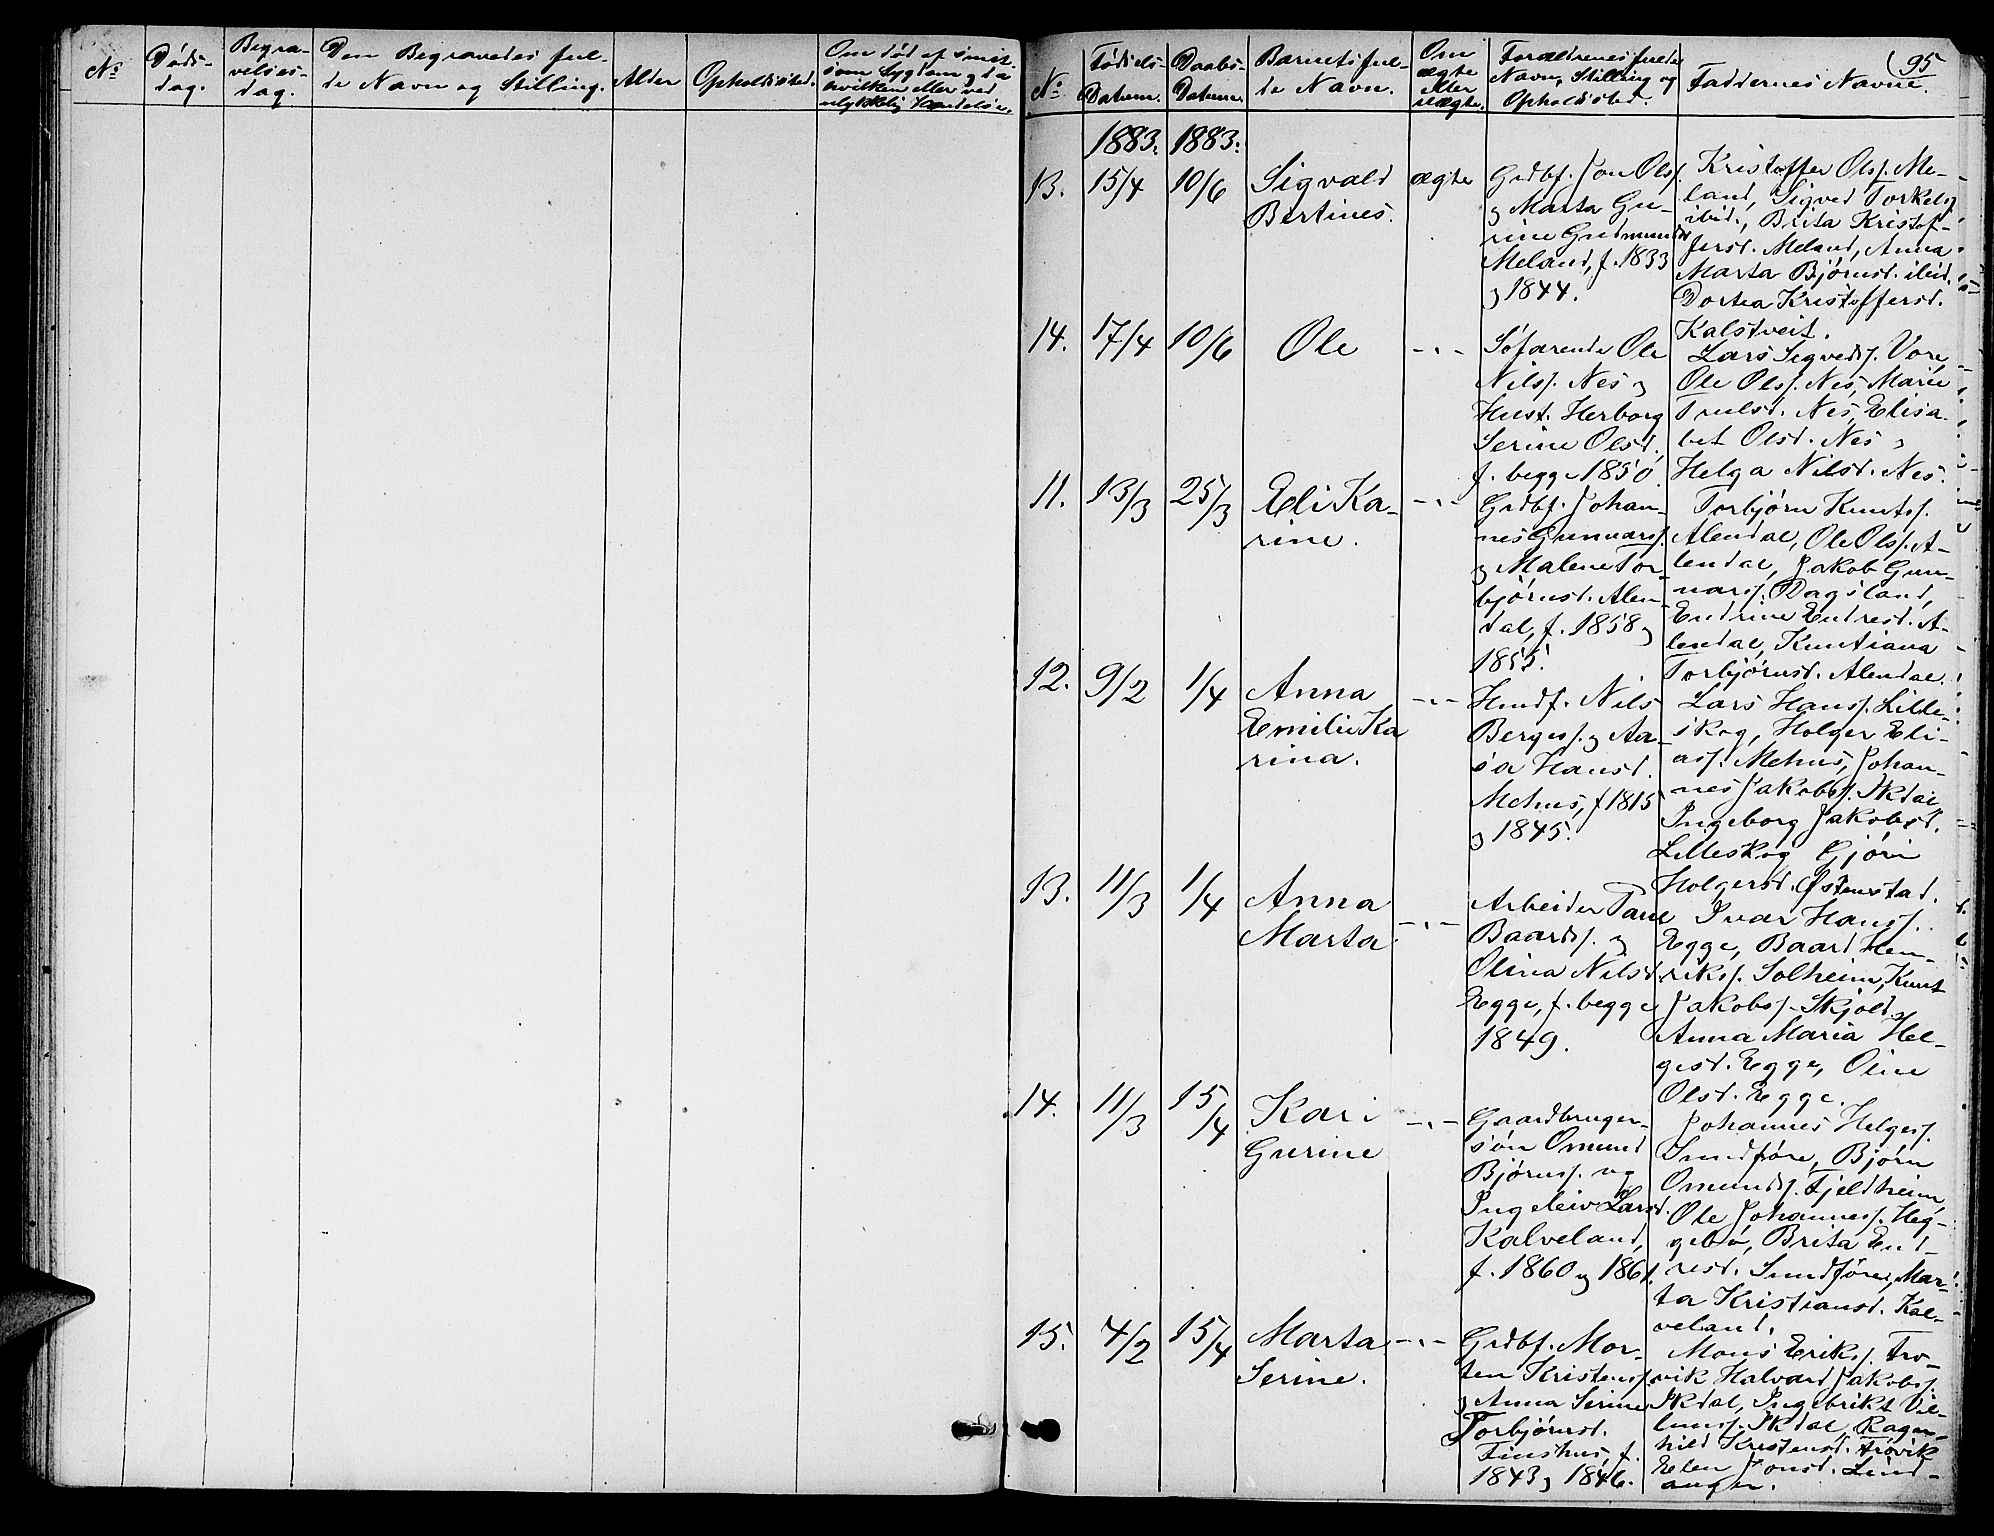 No
Døds-
dag.
Begra-
velses-
dag.
Den Begravedes ful-
de Navn og Stilling.
Alder
Opholdssted.
Om død af smit-
som Sygdom og da
hvilken eller ved
ulykkelig Hændelse.
95
No
Fødsels-
Datum.
Daabs-
Datum.
Barnets ful-
de Navn.
Om
ægte
eller
uægte.
Forældrenes fulde
Navn, Stilling og
Opholdssted.
Faddernes Navne.
1883. 1883.
13. 15/4 10/6
Sigvald
Bertines.
ægte
Grdbf. Jon Ols.
og Marta Gu-
rine Gudmundsd
Meland, f. 1833
og 1844.
Kristoffer Ols. Me-
land, Sigved Torkels.
ibid., Brita Kristof-
fersd. Meland, Anna
Marta Bjørnsd. ibid.
Dortea Kristoffersd.
Kalstveit.
14. 17/4 10/6
Ole
-"-
Søfarende Ole
Nils. Nes og
Hust. Herborg
Serine Olsd.
f. begge 1850.
Lars Sigveds. Vore
Ole Ols. Nes, Marie
Trulsd. Nes, Elisa-
bet Olsd. Nes og
Helga Nilsd. Nes.
11. 13/3 25/3
Eli Ka-
rine.
-"-
Grdbf. Johan-
nes Gunnars.
og Malene Tor-
bjørnsd. Alen-
dal, f. 1858 og
1855.
Torbjørn Knuts.
Alendal, Ole Ols. A-
lendal, Jakob Gun-
nars. Dagsland,
Endrine Endresd. A-
lendal, Knutiana
Torbjørnsd. Alendal.
12. 9/2 1/4
Anna
Emilie Ka
rina.
-"-
Husmf. Nils
Berges. og Aa-
sa Hansd.
Mehus, f 1815
og 1845.
Lars Hans. Lille-
skog, Holger Eli-
as. Mehus, Johan-
nes Jakobs. Skdal,
Ingeborg Jakobsd.
Lilleskog Gjøri
Holgersd. Østenstad.
13. 11/3 1/4
Anna
Marta.
-"-
Arbeider Paul
Baards. og
Olina Nilsd.
Egge, f. begge
1849.
Ivar Hans.
Egge, Baard Hen-
riks. Solheim, Knut
Jakobs. Skjold.
Anna Maria Hel-
gesd. Egge, Oline
Olsd. Egge.
14. 11/3 15/4
Kari
Gurine
-"-
Gaardbruger-
søn Omund
Bjørns. og
Ingeleiv Larsd.
Kalveland,
f. 1860 og 1861.
Johannes Helges.
Sundføre, Bjørn
Omunds. Fjeldheim
Ole Johannes. Heg-
gebø, Brita End-
resd. Sundføre, Mar-
ta Kristiansd. Kal-
veland.
15. 4/2 15/4
Marta
Serine.
-"-
Grdbf. Mor-
ten Kristens.
og Anna Serine
Torbjørnsd.
Finshus, f.
1843 og 1846.
Mons Eriks. Frø-
vik Halvard Jakobs.
Skdal, Ingebrikt Vil-
lums. Skdal, Ragn-
hild Kristensd. Frøvik
Elen Jonsd. Lind-
anger.